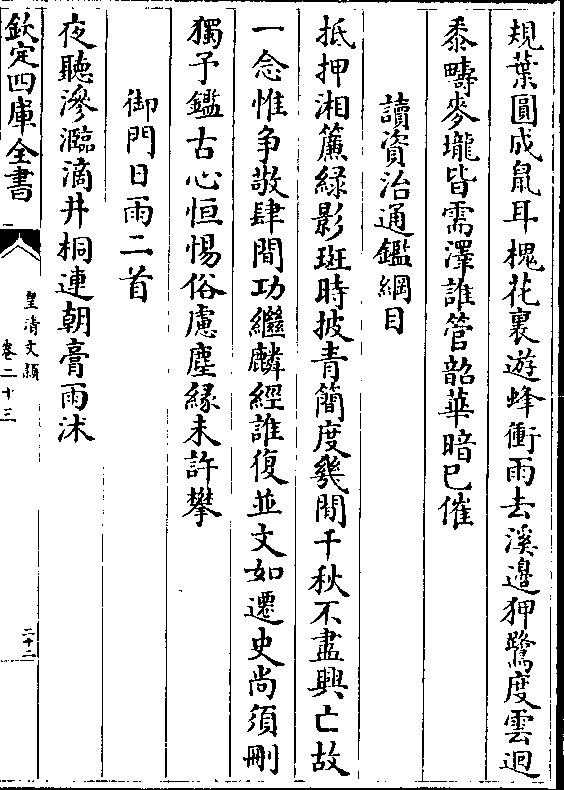 規葉圓成鼠耳槐花裏遊蜂衝雨去溪邉狎鷺度雲迴
黍疇麥壠皆需澤誰管韶華暗已催
讀資治通鑑綱目
抵押湘簾緑影斑時披青簡度幾閒千秋不盡興亡故
一念惟争敬肆間功繼麟經誰復並文如遷史尚須刪
獨予鑑古心恒惕俗慮塵縁未許攀
御門日雨二首
夜聽滲㶟滴井桐連朝膏雨沭
欽定四庫全書
皇清文頴
卷二十三
二十二